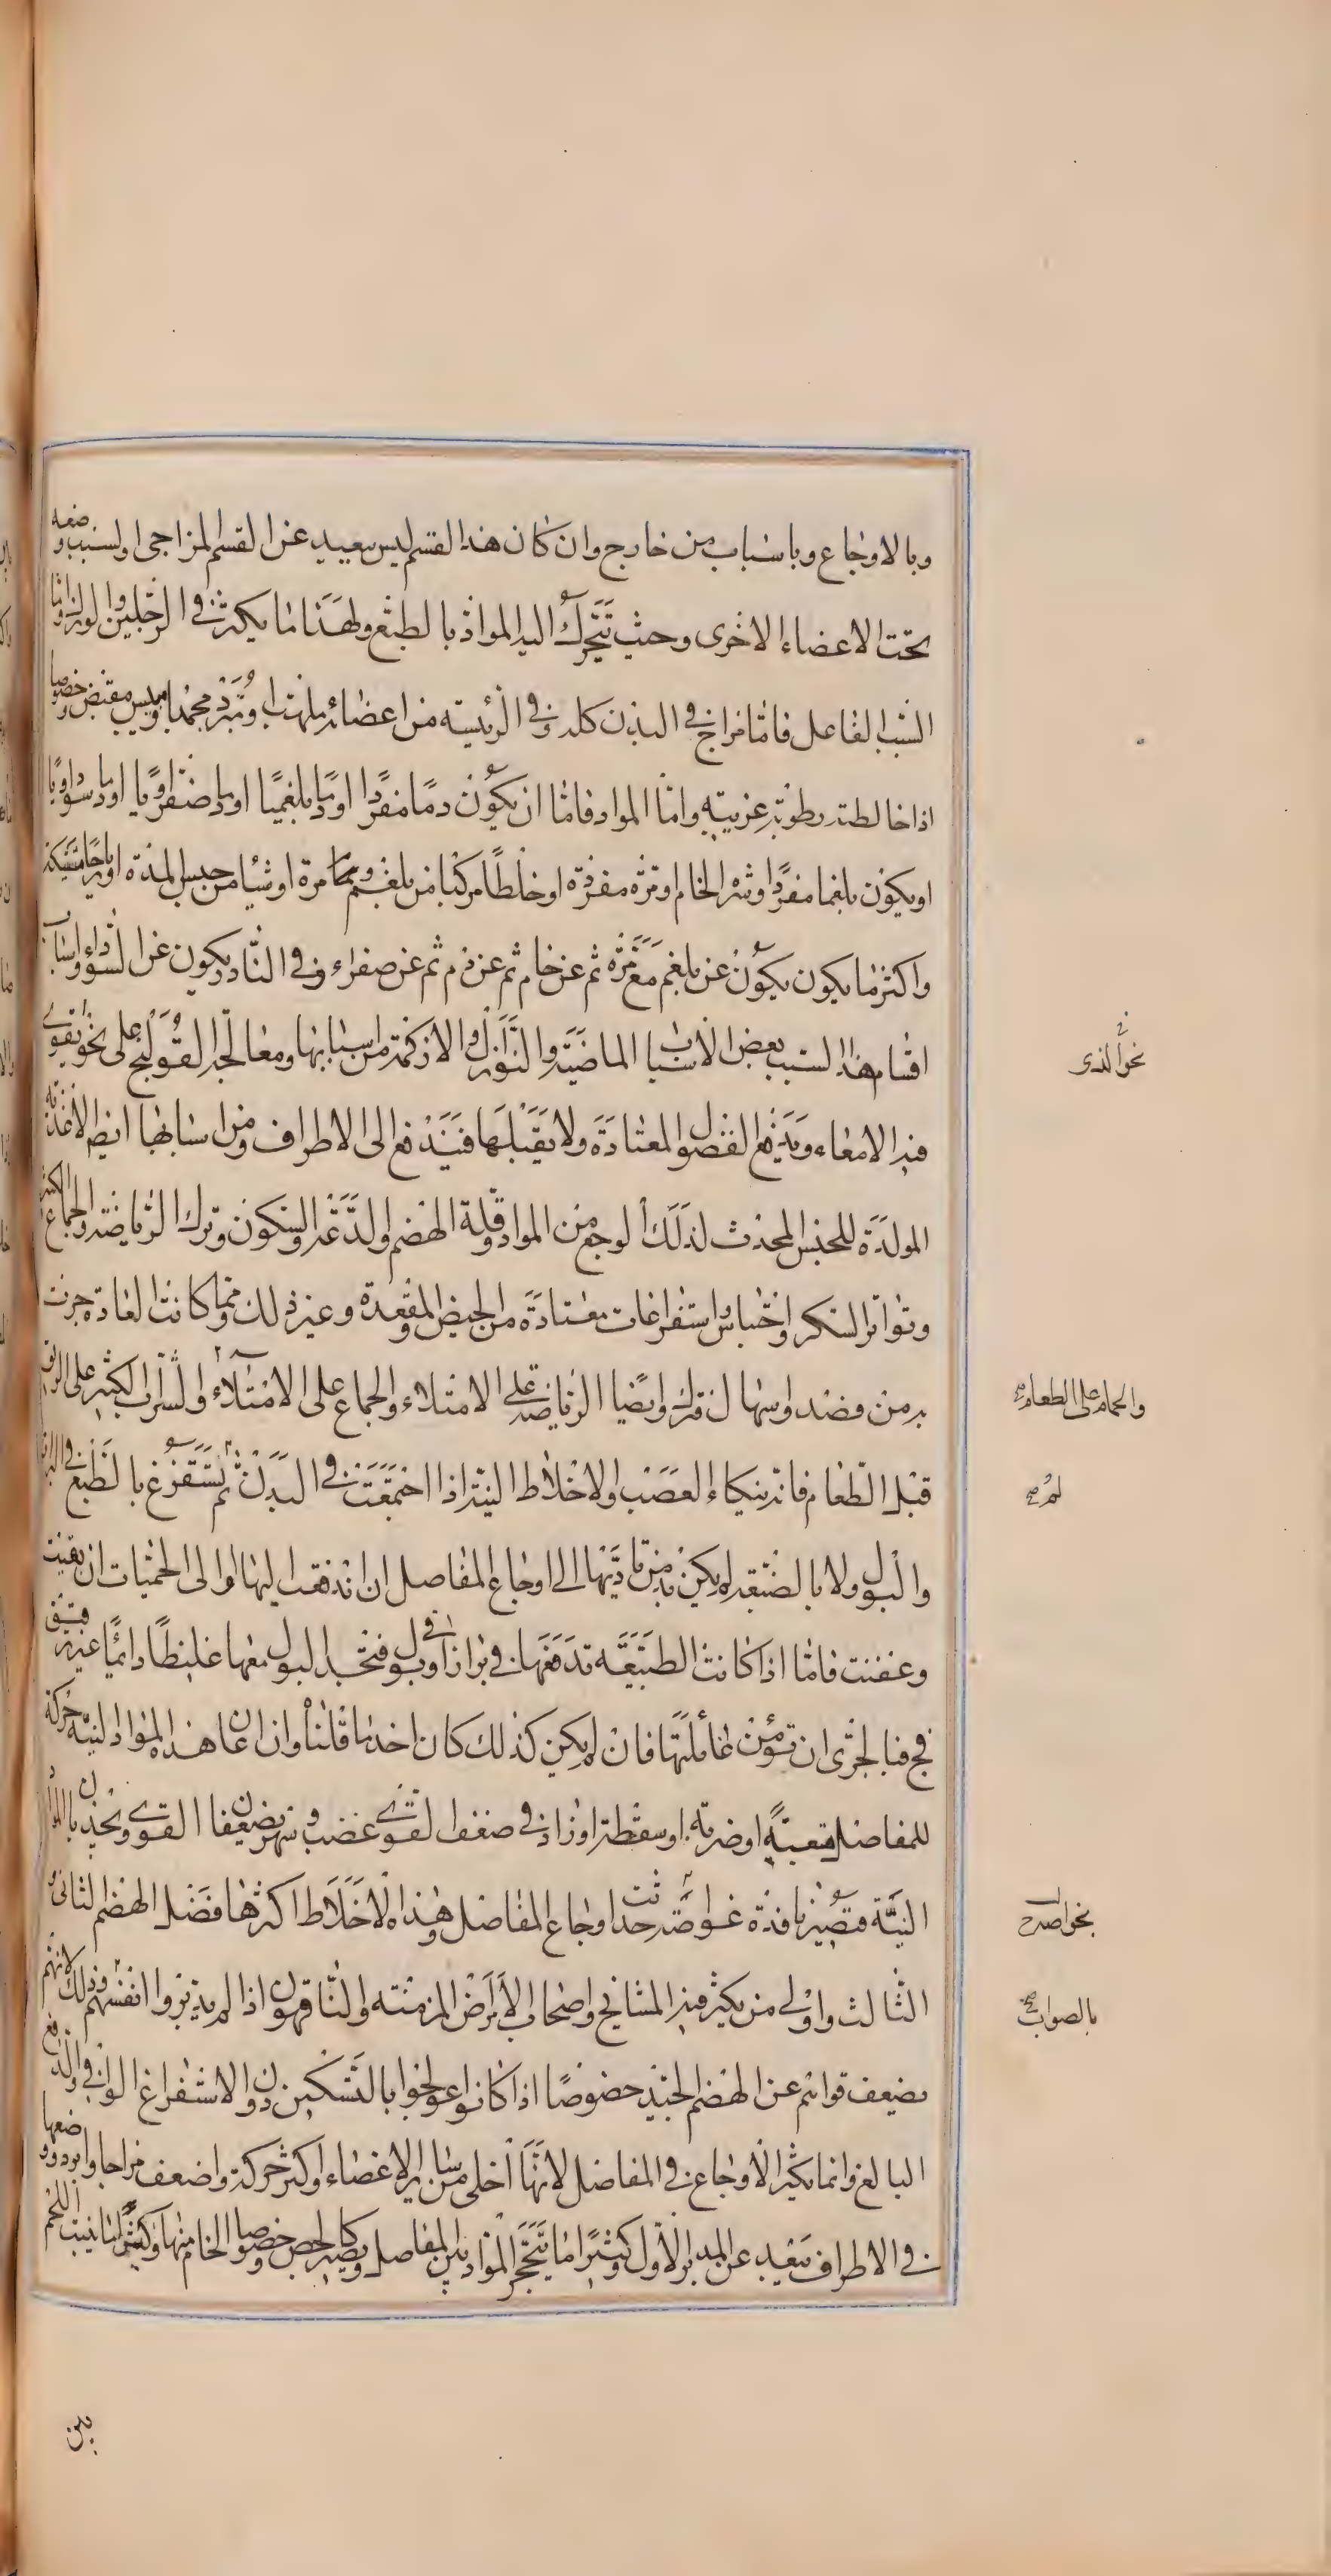 وبالاوجاع وباسباب من خارج وان كان هذا القسم ليس ببعيد عن القسم المزاجي او لسبب وضعه
تحت الاعضاء الاخرى وحيث تتحرك اليه المواد بالطبع ولهذا ما يكثر في الرجلين والورك واما
السبب الفاعل فاما مزاج في البدن كله وفي الرئيسة من اعضائه ملهب او مبرد مجمد او ميبس مقبض وخصوصا
اذا خالطته رطوبة غريبة واما المواد فاما ان يكون دما مفردا او دما بلغميا او دما صفراويا او دما سوداويا
او يكون بلغما مفردا وشره الخام او مرة مفردة او خلطا مركبا من بلغم ومرة او شيئا من جنس المدة او رياحا مشبكة
واكثر ما يكون يكون عن بلغم مع مرة ثم عن خام ثم عن دم ثم عن صفراء وفي النادر يكون عن السوداء واسباب
اقسام هذا السبب بعض الاسباب الماضية والنوازل والازكمة من اسبابها ومعالجة القولنج على نحو تقوى
فيه الامعاء وتدفع الفضول المعتادة ولا تقبلها فتندفع الى الاطراف ومن اسبابها ايضا الاغذية
المولدة للجنس المحدث لذلك الوجع من المواد وقلة الهضم والدعة والسكون وترك الرياضة والجماع الكثير
وتواتر السكر واحتباس استفراغات معتادة من الحيض والمقعدة وغير ذلك ومما كانت العادة جرت
به من فصد او اسهال فترك وايضا الرياضة على الامتلاء والجماع على الامتلاء والشراب الكثير على الريق
قبل الطعام فانه ينكاء العصب والاخلاط النية اذا اجتمعت في البدن ثم تستفرغ بالطبع في البراز
والبول ولا بالصنعة لم يكن بد من تأديتها الى اوجاع المفاصل ان اندفعت اليها او الى الحميات ان بقيت
وعفنت فاما اذا كانت الطبيعة تدفعها في براز او بول فتجد البول معها غليظا دائما غير رقيق
فج فبالحرى ان تؤمن غائلتها فان لم يكن كذلك كان احد ما قلناه وان اعان هذه المواد النية حركة
للمفاصل متعبة او ضربة او سقطة او زاد في ضعف القوى غضب وسهر يضعفان القوى ويجذبان المواد
النية فتصير نافذة غواصة حدثت اوجاع المفاصل وهذه الاخلاط اكثرها فضل الهضم الثاني و
الثالث واولى من يكثر فيه المشائخ واصحاب الامراض المزمنة والناقهون اذا لم يدبروا انفسهم وذلك لانهم
تضعف قواهم عن الهضم الجيد خصوصا اذا كانوا عولجوا بالتسكين دون الاستفراغ الوافي والدفع
البالغ وانما يكثر الاوجاع في المفاصل لانها اخلى من سائر الاعضاء واكثر حركة واضعف مزاجا وابرد ووضعها
في الاطراف بعيد عن المدبر الاول وكثيرا ما يتحجر المواد بين المفاصل ويصير كالجص وخصوصا الخام منها وكثيرا ما ينبت اللحم
بين
نحو الذى
والحمام على الطعام
لم
نحو اصدر
بالصواب